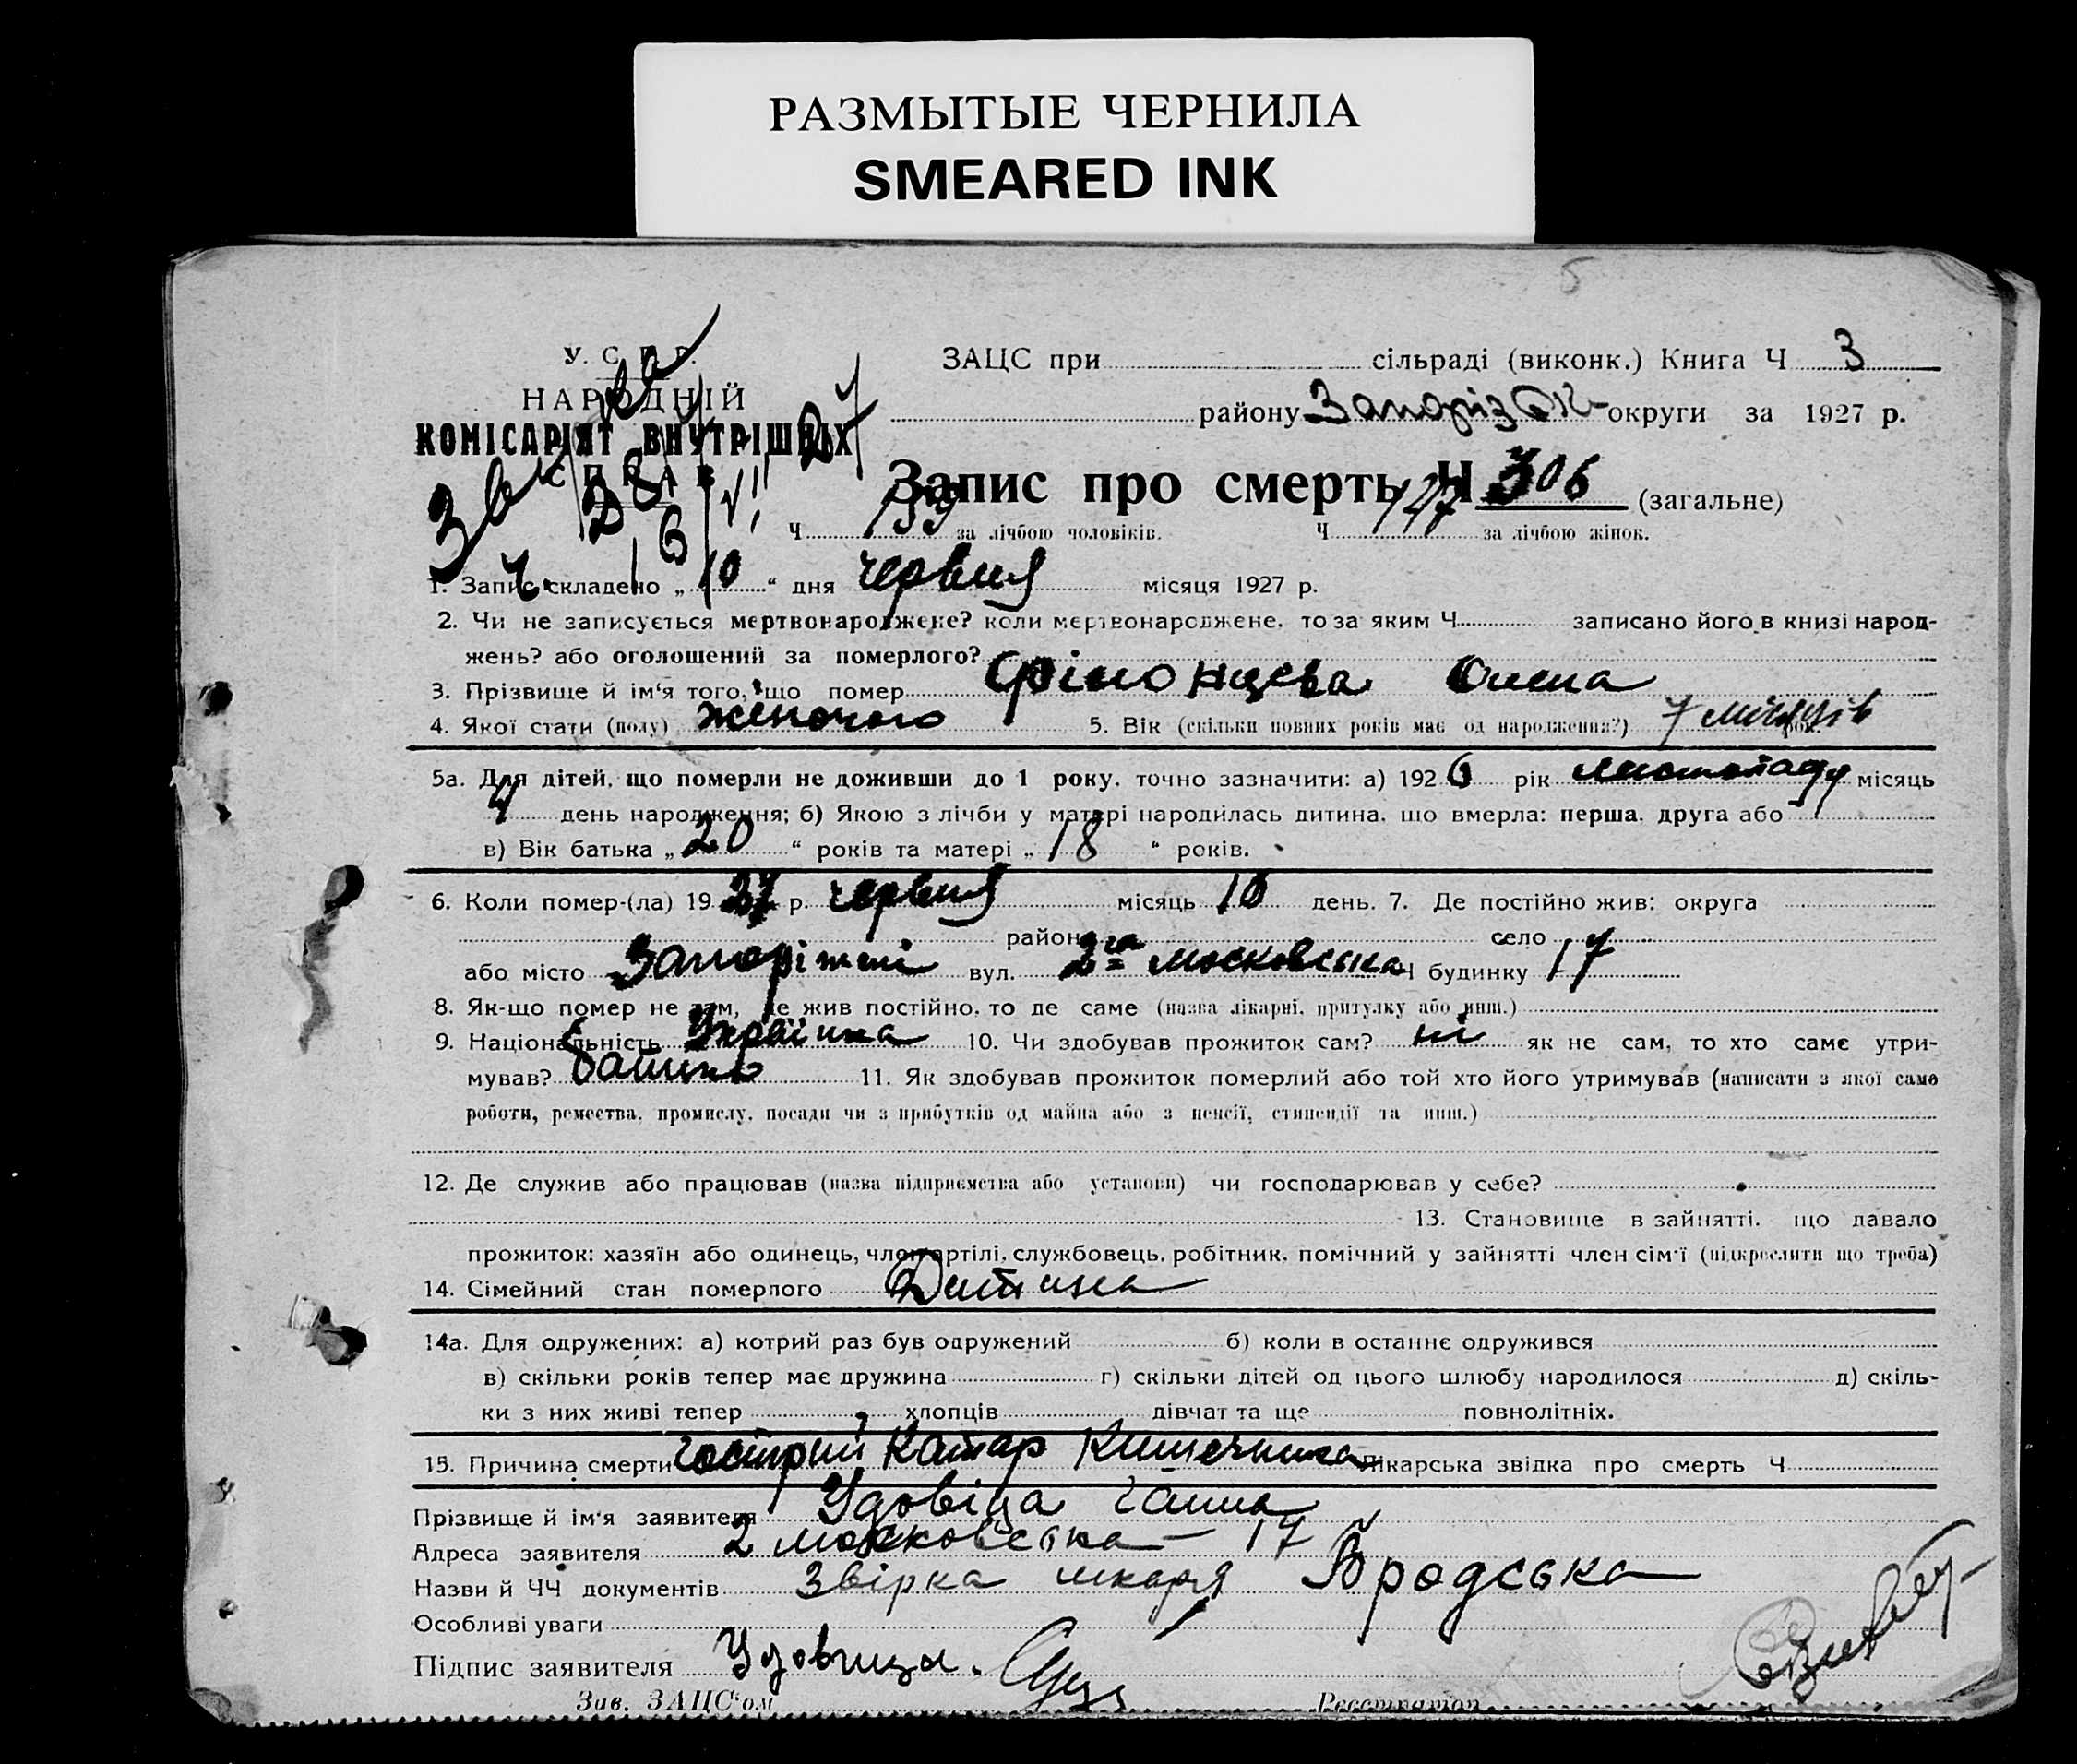 РАЗМЫТЫЕ ЧЕРНИЛА
SMEARED INK
У. С. Р. Р.
НАРОДНІЙ
КОМІСАРІЯТ ВНУТРІШНІХ
СПРАВ
ЗАЦС при сільраді (виконк.) Книга Ч 3
району Запорізьк округи за 1927 р.
Запис про смерть Ч 306 (загальне)
Ч 159 за лічбою чоловіків. Ч 147 за лічбою жінок.
1. Запис складено „ 10 “ дня червня місяця 1927 р.
2. Чи не записується мертвонароджене? коли мертвонароджене, то за яким Ч записано його в книзі народ-
жень? або оголошений за померлого?
3. Прізвище й ім'я того, що помер Олена
4. Якої стати (полу) женочого 5. Вік (скільки повних років має од народження?) 7 місяців рок.
5а. Для дітей, що померли не доживши до 1 року, точно зазначити: а) 192 6 рік листопаду місяць
4 день народження; б) Якою з лічби у матері народилась дитина, що вмерла: перша, друга або
в) Вік батька „ 20 “ років та матері „ 18 “ років.
6. Коли помер-(ла) 19 27 р. червня місяць 10 день. 7. Де постійно жив: округа
район село
або місто Запоріжжі вул. 2га московська Ч будинку 17
8. Як-що помер не там, де жив постійно, то де саме (назва лікарні, притулку або инш.)
9. Національність Українка 10. Чи здобував прожиток сам? ні як не сам, то хто саме утри-
мував? батько 11. Як здобував прожиток померлий або той хто його утримував (написати з якої саме
роботи, ремества, промислу, посади чи з прибутків од майна або з пенсії, стипендії та инш.)
12. Де служив або працював (назва підприємства або установи) чи господарював у себе?
13. Становище в зайнятті, що давало
прожиток: хазяїн або одинець, член артілі, службовець, робітник, помічний у зайнятті член сім'ї (підкреслити що треба)
14. Сімейний стан померлого Дитина
14а. Для одружених: а) котрий раз був одружений б) коли в останнє одружився
в) скільки років тепер має дружина г) скільки дітей од цього шлюбу народилося д) скіль-
ки з них живі тепер хлопців дівчат та ще повнолітніх.
15. Причина смерти гострий Катар Кишечника Лікарська звідка про смерть Ч
Прізвище й ім'я заявителя Удовіца Ганна
Адреса заявителя 2 московська – 17
Назви й ЧЧ документів Звірка лікаря Бродська
Особливі уваги
Підпис заявителя Удовица.
Зав. ЗАЦС'ом Реєстратор